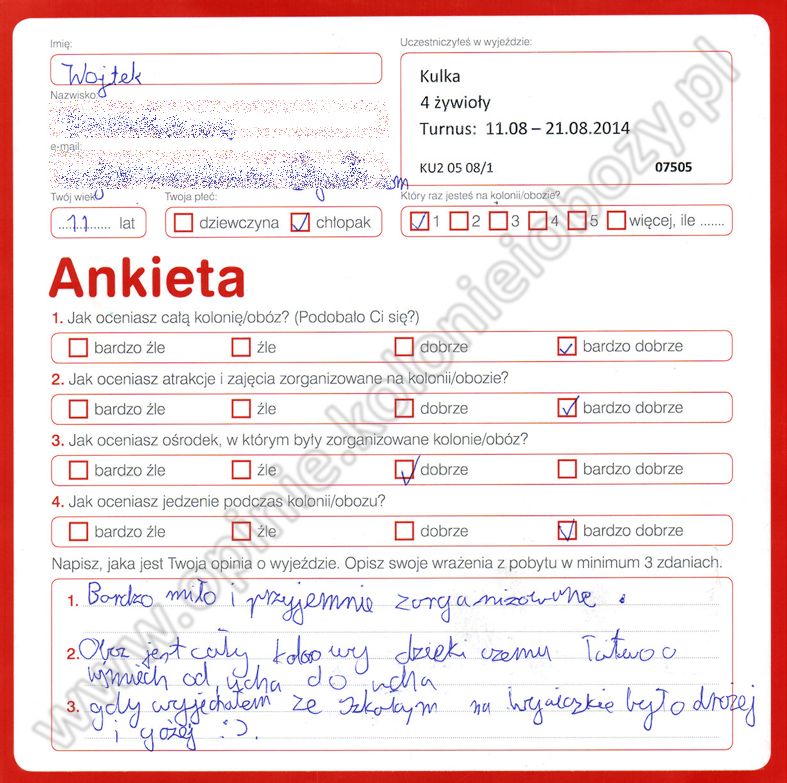 Imię:
Uczestniczyłeś w wyjeździe:
Wojtek
Kulka
4 żywioły
Turnus: 11.08 – 21.08.2014
KU2 05 08/1 07505
Nazwisko:
e-mail:
Twój wiek:
Twoja płeć:
Który raz jesteś na kolonii/obozie?
11 lat
dziewczyna chłopak
1 2 3 4 5 więcej, ile .......
Ankieta
1. Jak oceniasz całą kolonię/obóz? (Podobało Ci się?)
bardzo źle źle dobrze bardzo dobrze
2. Jak oceniasz atrakcje i zajęcia zorganizowane na kolonii/obozie?
bardzo źle źle dobrze bardzo dobrze
3. Jak oceniasz ośrodek, w którym były zorganizowane kolonie/obóz?
bardzo źle źle dobrze bardzo dobrze
4. Jak oceniasz jedzenie podczas kolonii/obozu?
bardzo źle źle dobrze bardzo dobrze
Napisz, jaka jest Twoja opinia o wyjeździe. Opisz swoje wrażenia z pobytu w minimum 3 zdaniach.
1. Bardzo miło i przyjemnie zorganizowane.
2. Oboz jest cały kolorowy dzięki czemu łatwo o
uśmiech od ucha do ucha
3. gdy wyjechałem ze szkołym na wycieczkie było drożej
i gożej :).
www.opinie.kolonieiobozy.pl